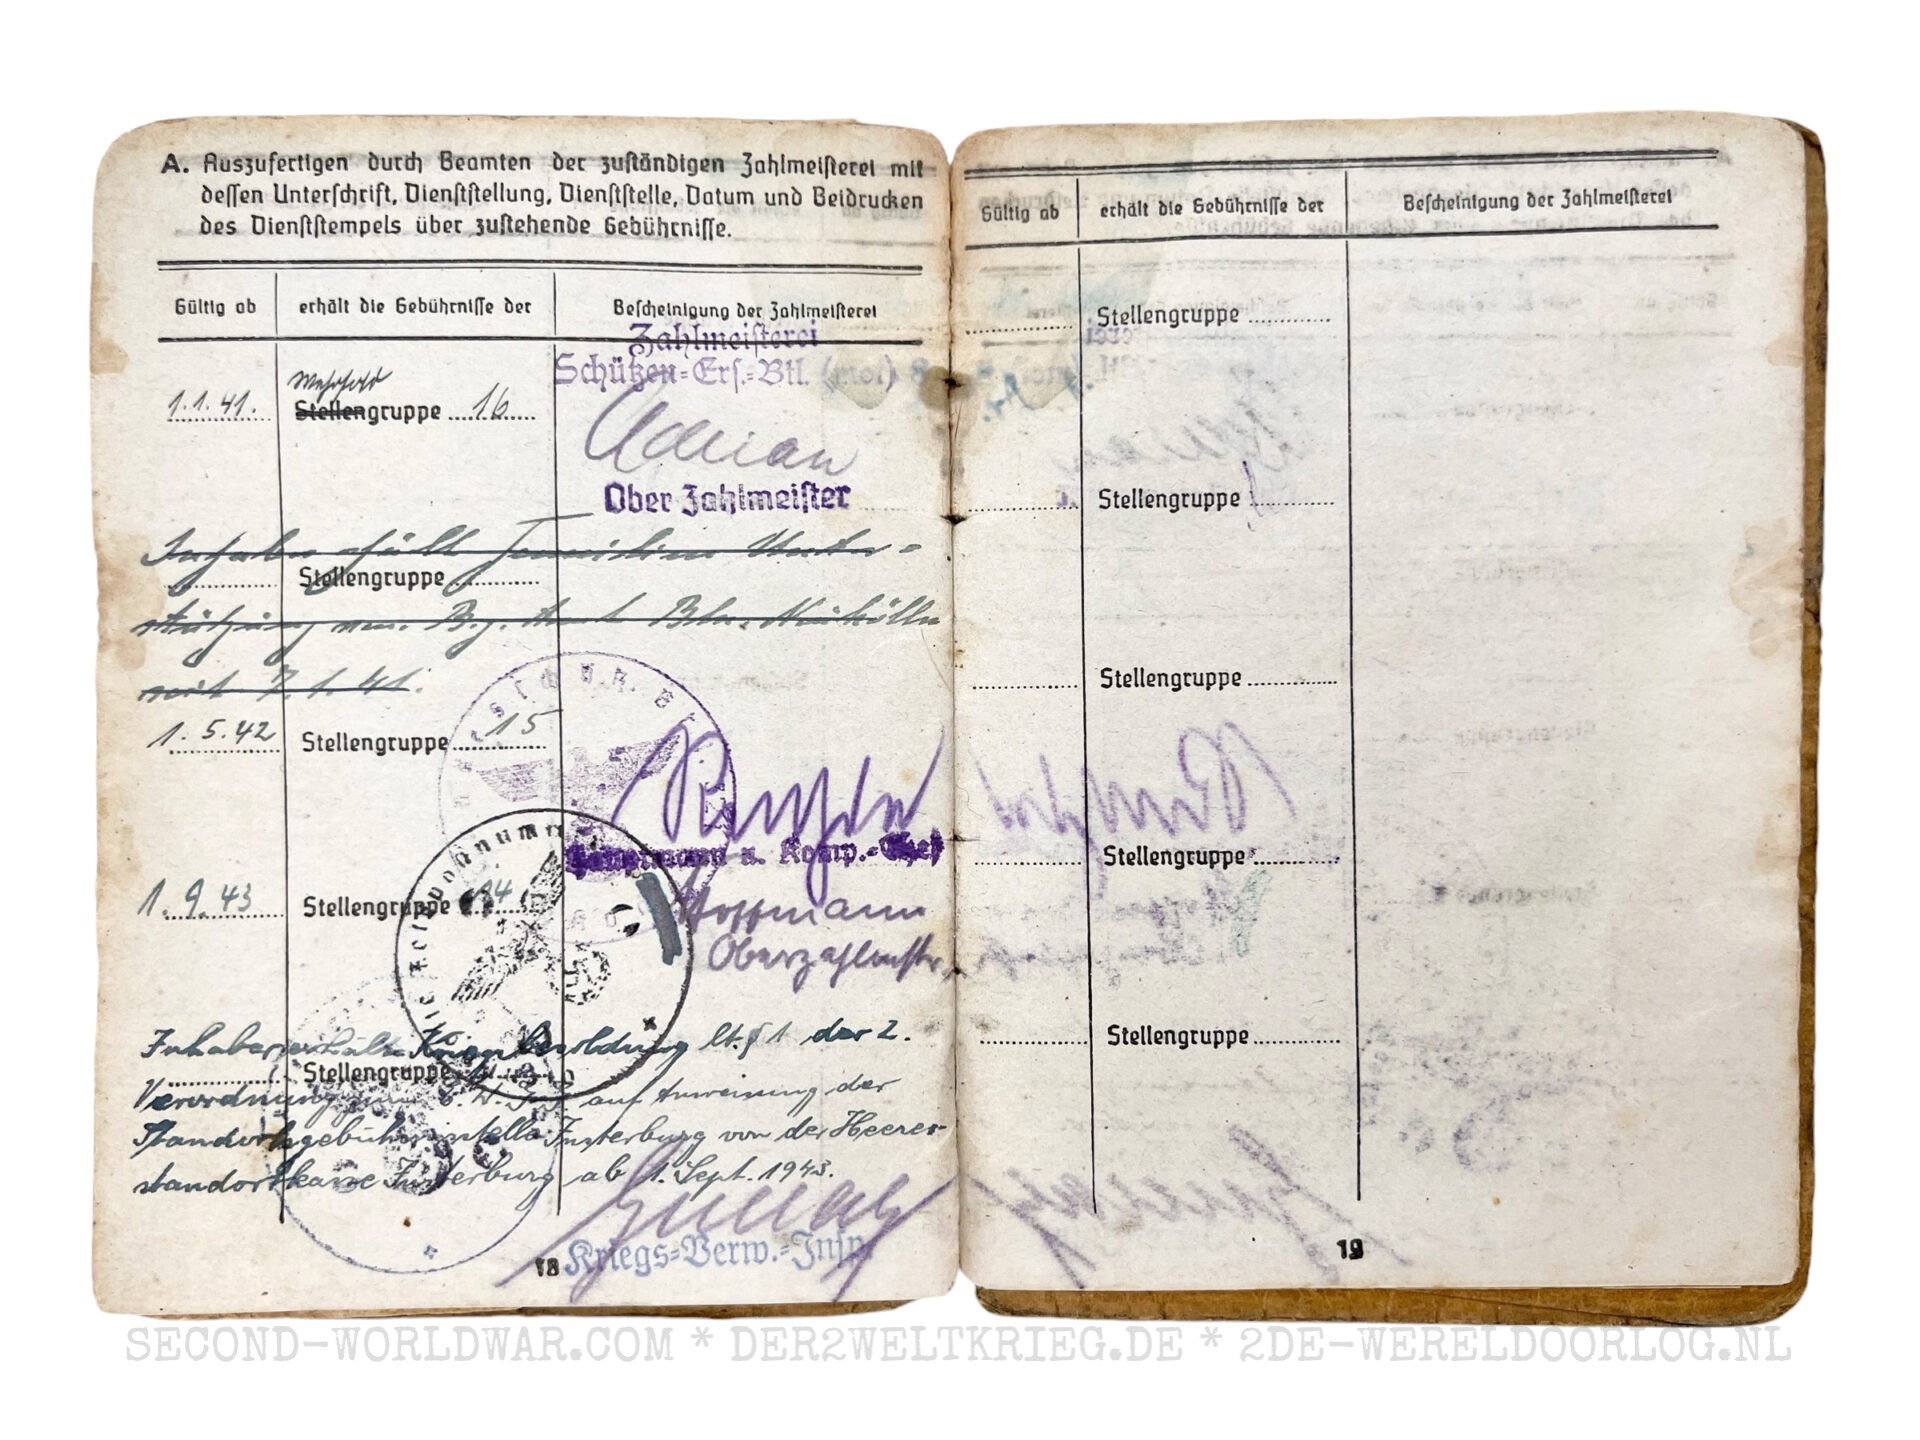 A. Auszufertigen durch Beamten der zuständigen Zahlmeisterei mit
dessen Unterschrift, Dienststellung, Dienststelle, Datum und Beidrucken
des Dienststempels über zustehende Gebührnisse.
Gültig ab erhält die Gebührnisse der Bescheinigung der Zahlmeisterei
Zahlmeisterei
Schützen=Ers.=Btl. (mot) 8
Wehrsold
1.1.41. Stellengruppe 16
Adrian
Ober Zahlmeister
Inhaber erhält Familien Unter=
Stellengruppe
stützung von Bz. Amt Bln. Neukölln
seit 7.1.41.
1.5.42 Stellengruppe 15
Hauptmann u. Komp.-Chef
1.9.43 Stellengruppe 14
Hoffmann
Oberzahlmstr.
Inhaber erhält Kriegsbesoldung lt. § 1 der 2.
Stellengruppe
Verordnung zum E.W.G.G. auf Anweisung der
Standortgebührnisstelle Insterburg von der Heeres-
standortkasse Insterburg ab 1. Sept. 1943.
Kriegs=Verw.=Insp.
18
Gültig ab erhält die Gebührnisse der Bescheinigung der Zahlmeisterei
Stellengruppe
Stellengruppe
Stellengruppe
Stellengruppe
Stellengruppe
19
SECOND-WORLDWAR.COM * DER2WELTKRIEG.DE * 2DE-WERELDOORLOG.NL